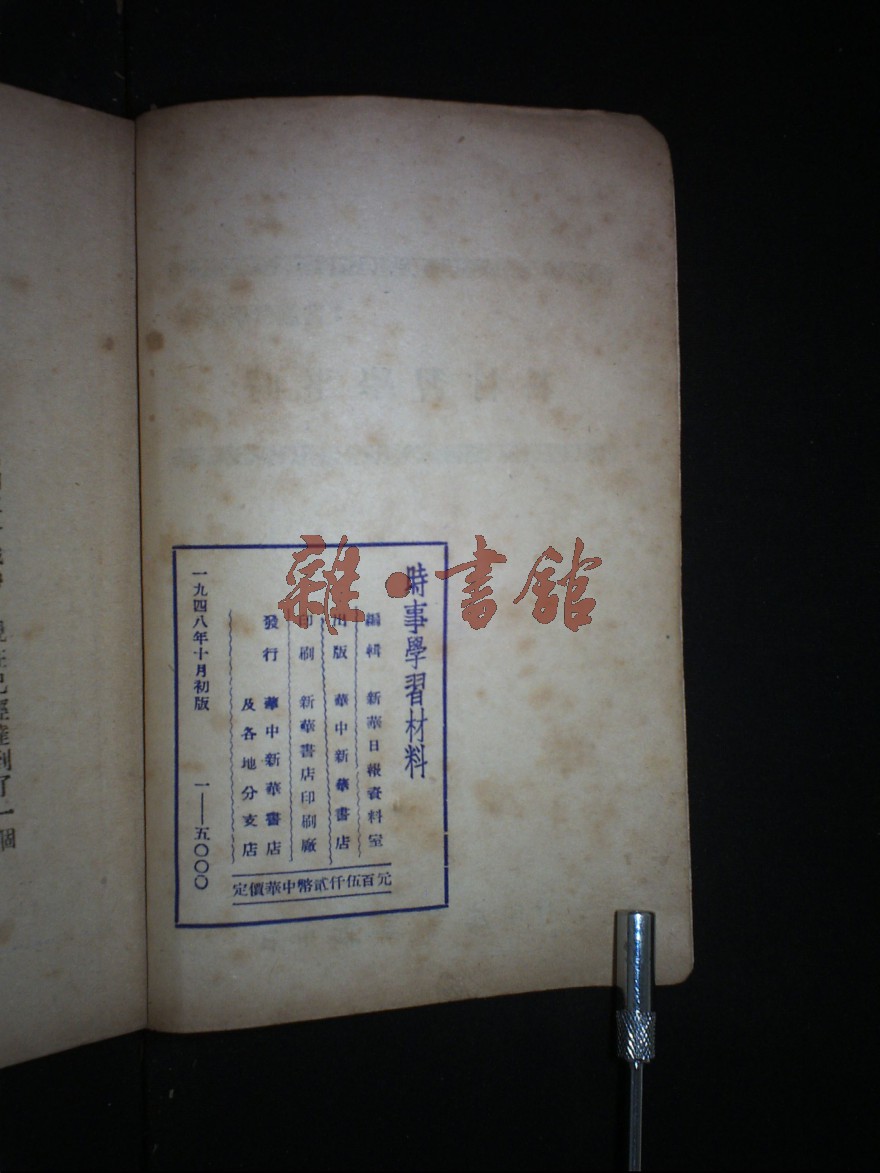 時事學習材料
編輯 新華日報資料室
出版 華中新華書店
印刷 新華書店印刷廠
發行 華中新華書店
及各地分支店
一九四八年十月初版 一——五〇〇〇
定價華中幣貳仟伍百元
雜·書館
現在已經達到了一個